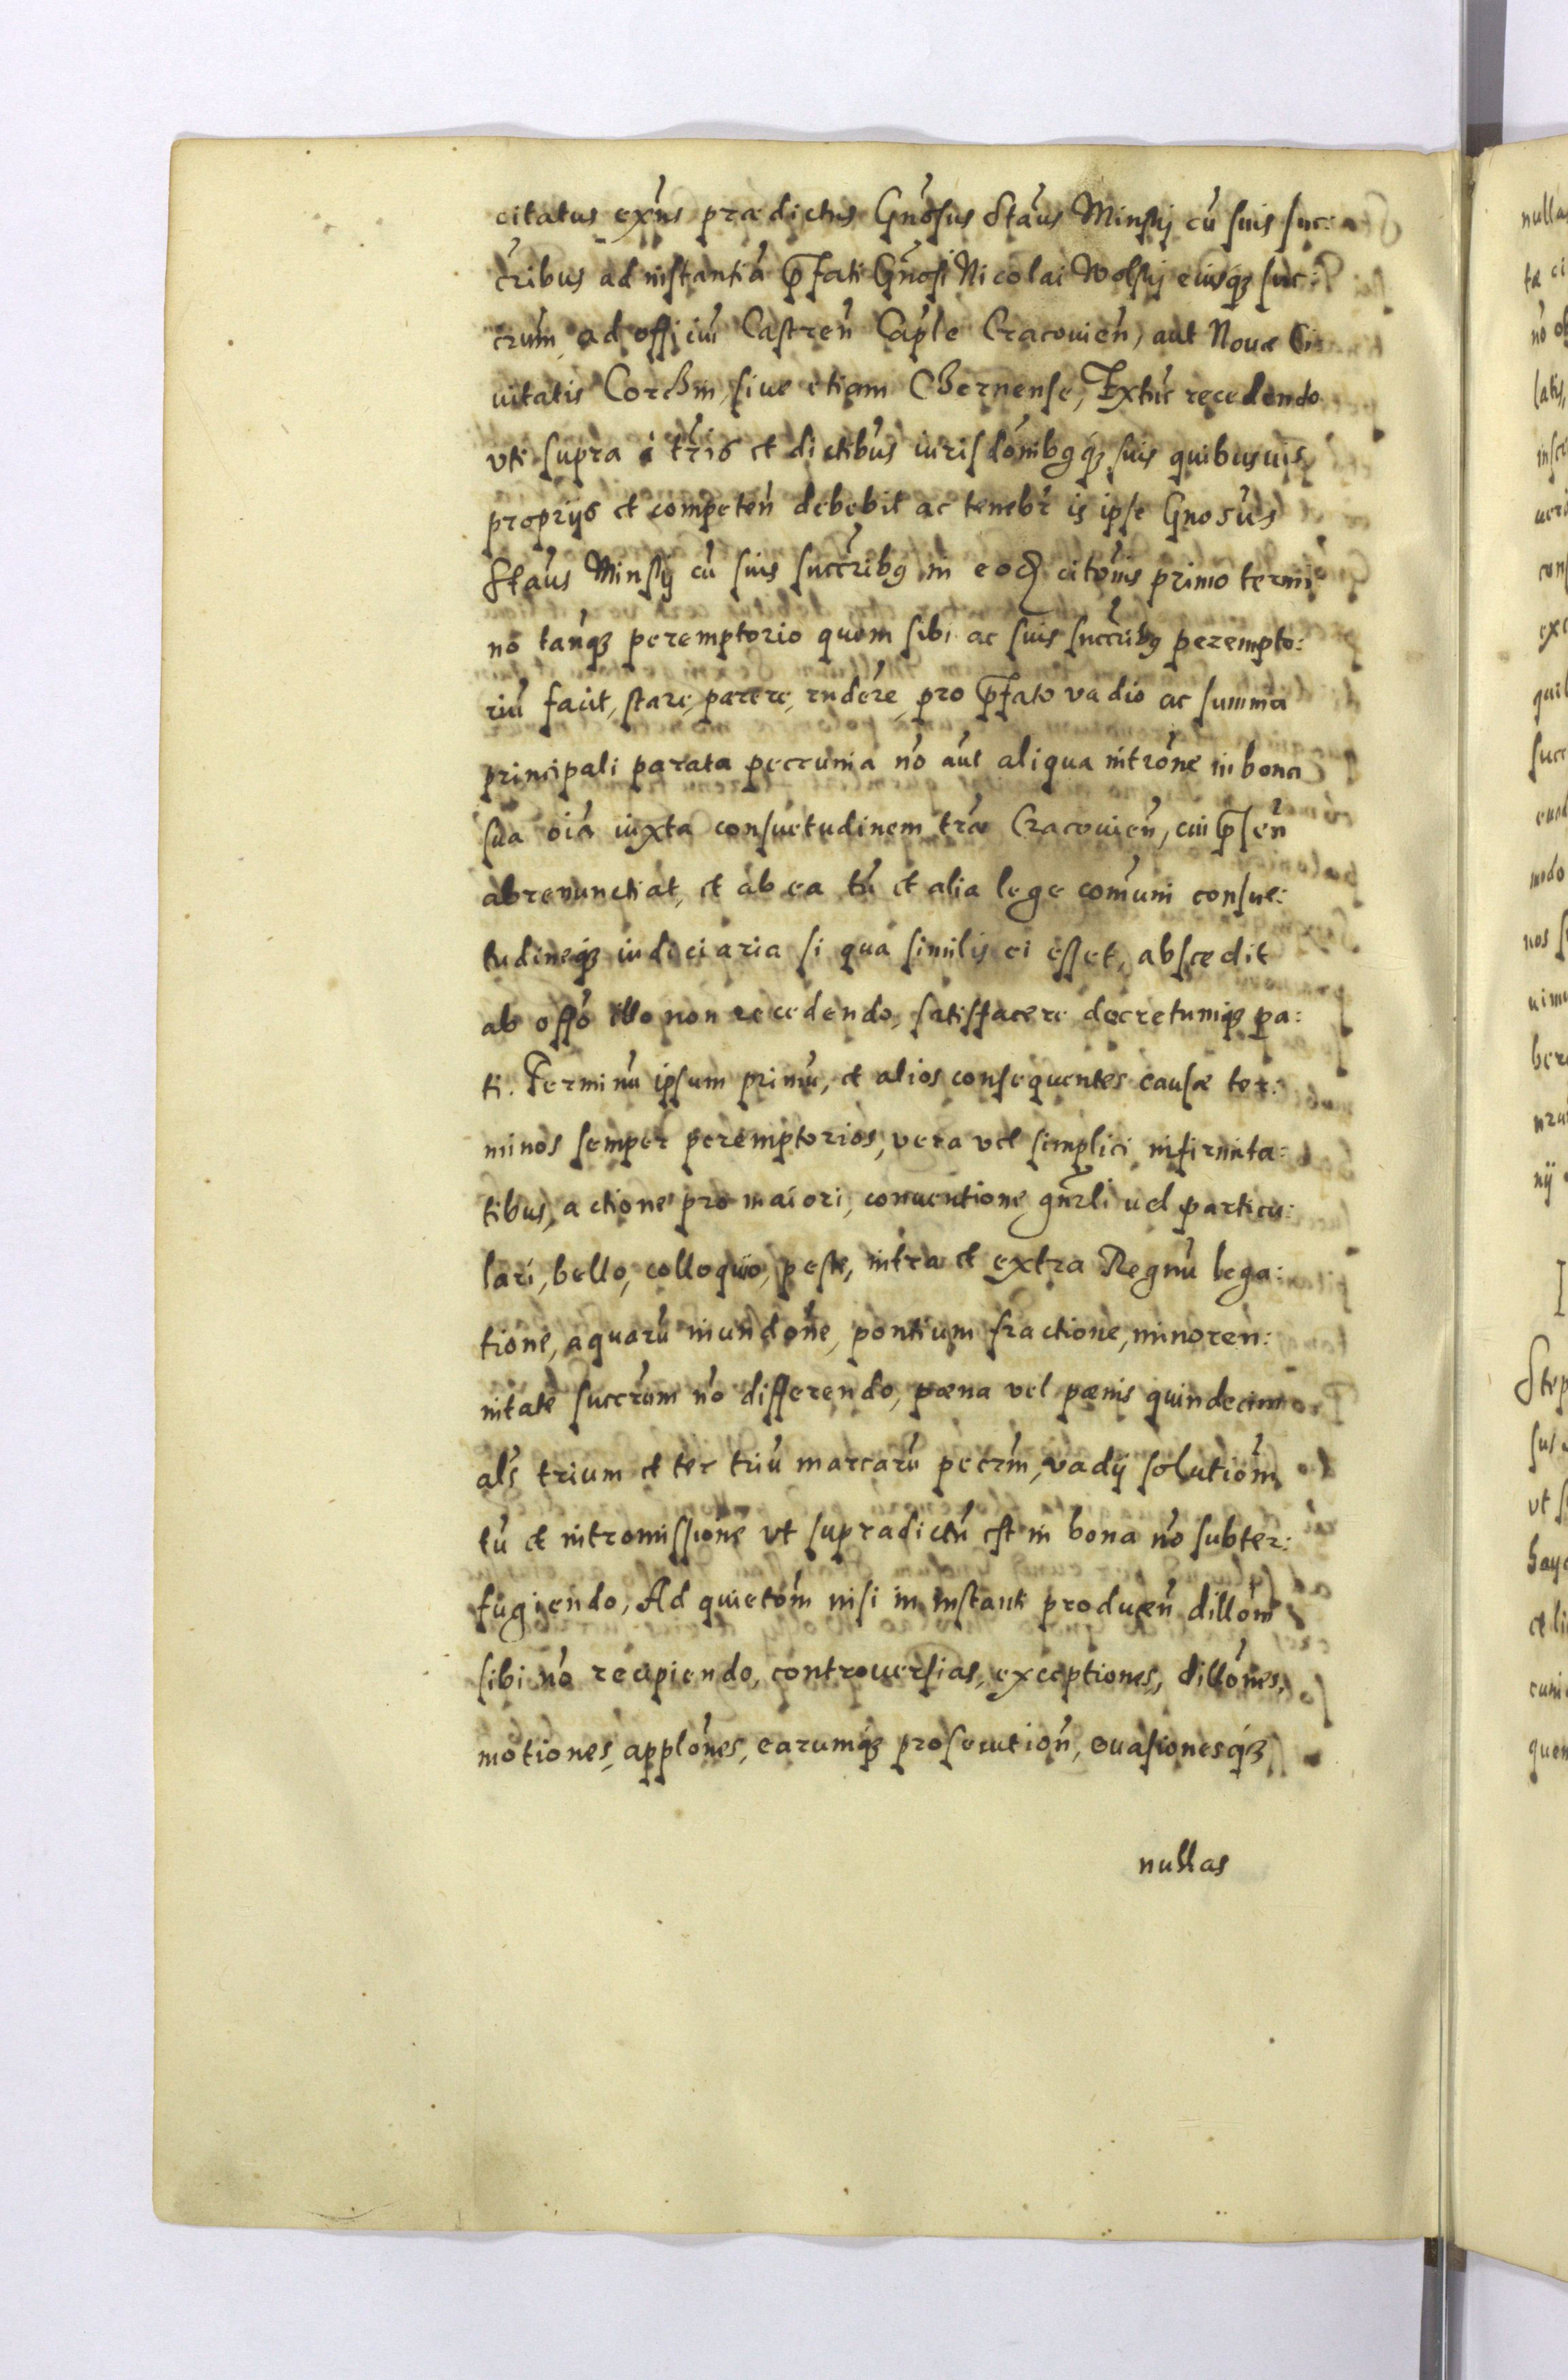 citatus exn̄s prædictus Gn̄osus Stan̄s Minsky cū suis suc:
cr̄ibus ad instantiā p̄fati Gn̄osi Nicolai Wolsky eiusqꝫ suc:
cr̄um, ad officiū Castren̄ Cap̄le Cracovien̄, aut Novæ Ci:
vitatis Corchin, sive etiam Chernense, Extūc recedendo
vti supra à tr̄is et districtibus iurisdōnibꝰqꝫ suis quibusuis
propriis et competen̄ debebit ac tenebr̄ is ipse Gn̄osus
Stan̄s Minsky cū suis succr̄ibꝰ in eod citōnis primo termi
no tanq̄ꝫ peremptorio quem sibi ac suis succr̄ibꝰ perempto:
riū facit, stare, parere, rn̄dere, pro p̄fato vadio ac summa
principali parata pecunia nō aut̄ aliqua intrōne in bona
sua oīa iuxta consuetudinem tr̄æ Cracovien̄, cui p̄sen̄
abrenunctiat, et ab ea tū et alia lege com̄uni consue:
tudineqꝫ iudiciaria si qua similis ei esset, abscedit
ab offō illo non recedendo, satisfacere decretumqꝫ pa:
ti. Terminū ipsum primū, et alios consequentes causæ ter:
minos semper peremptorios, vera vel simplici infirmita:
tibus, actione pro maiori, conuentione gn̄rli vel particu:
lari, bello, colloquio, peste, intra et extra Regnū lega:
tione, aquarū inundōne, pontium fractione, minoren:
nitate succr̄um nō differendo, pæna vel pænis quindecim
al̄s trium et ter triū marcarū pecr̄m, vadij solutiōm
tū et intromissione vt supradictū est in bona nō subter:
fugiendo, Ad quietōm nisi in instanti producen̄ dillōm
sibi nō recipiendo, controuersias, exceptiones, dillōnes,
motiones, applōnes, earumqꝫ prosecution̄, euasionesqꝫ
nullas